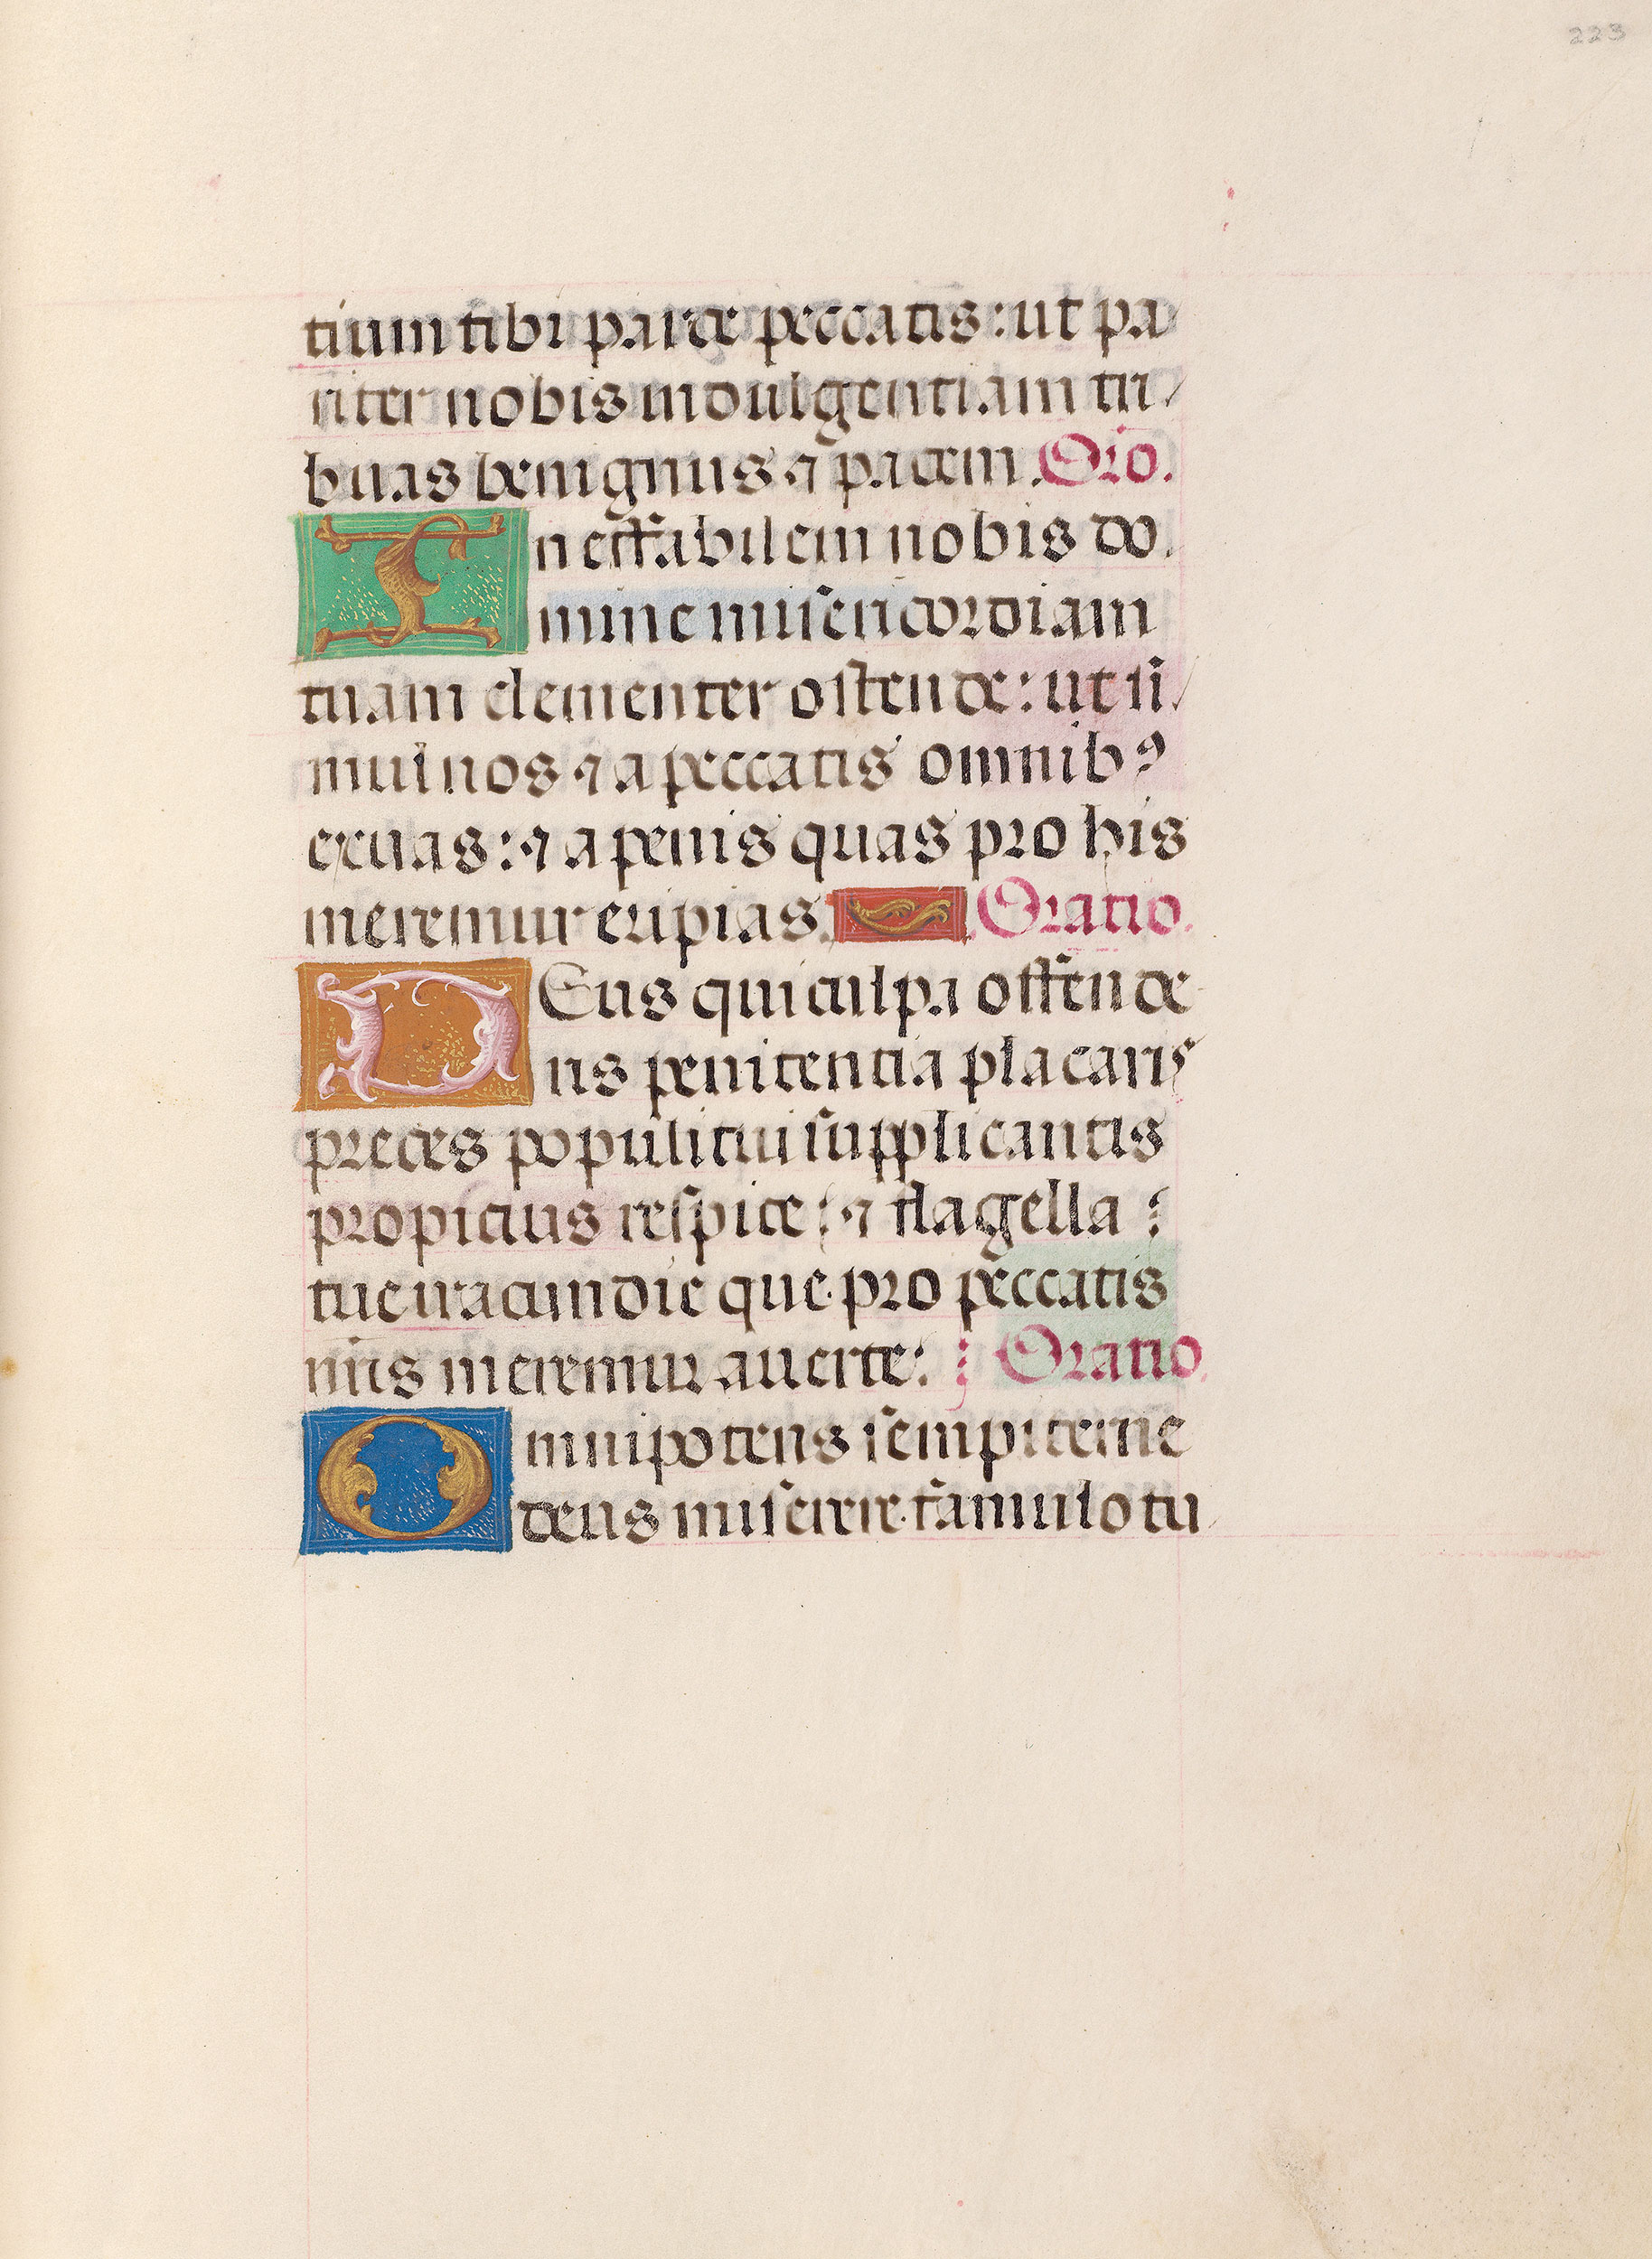 223
tium tibi parce peccatis: ut pa
riter nobis indulgentiam tri/
buas benignus ⁊ pacem. Oro.
Ineffabilem nobis do
mine misericordiam
tuam clementer ostende: ut si/
mul nos ⁊ a peccatis omnibꝰ
exuas: ⁊ a penis quas pro his
meremur eripias. Oratio.
DEus qui culpa offende
ris penitentia placaris
preces populi tui supplicantis
propicius respice: ⁊ flagella
tue iracundie que pro peccatis
nris meremur averte: Oratio.
Omnipotens sempiterne
deus miserere famulo tu